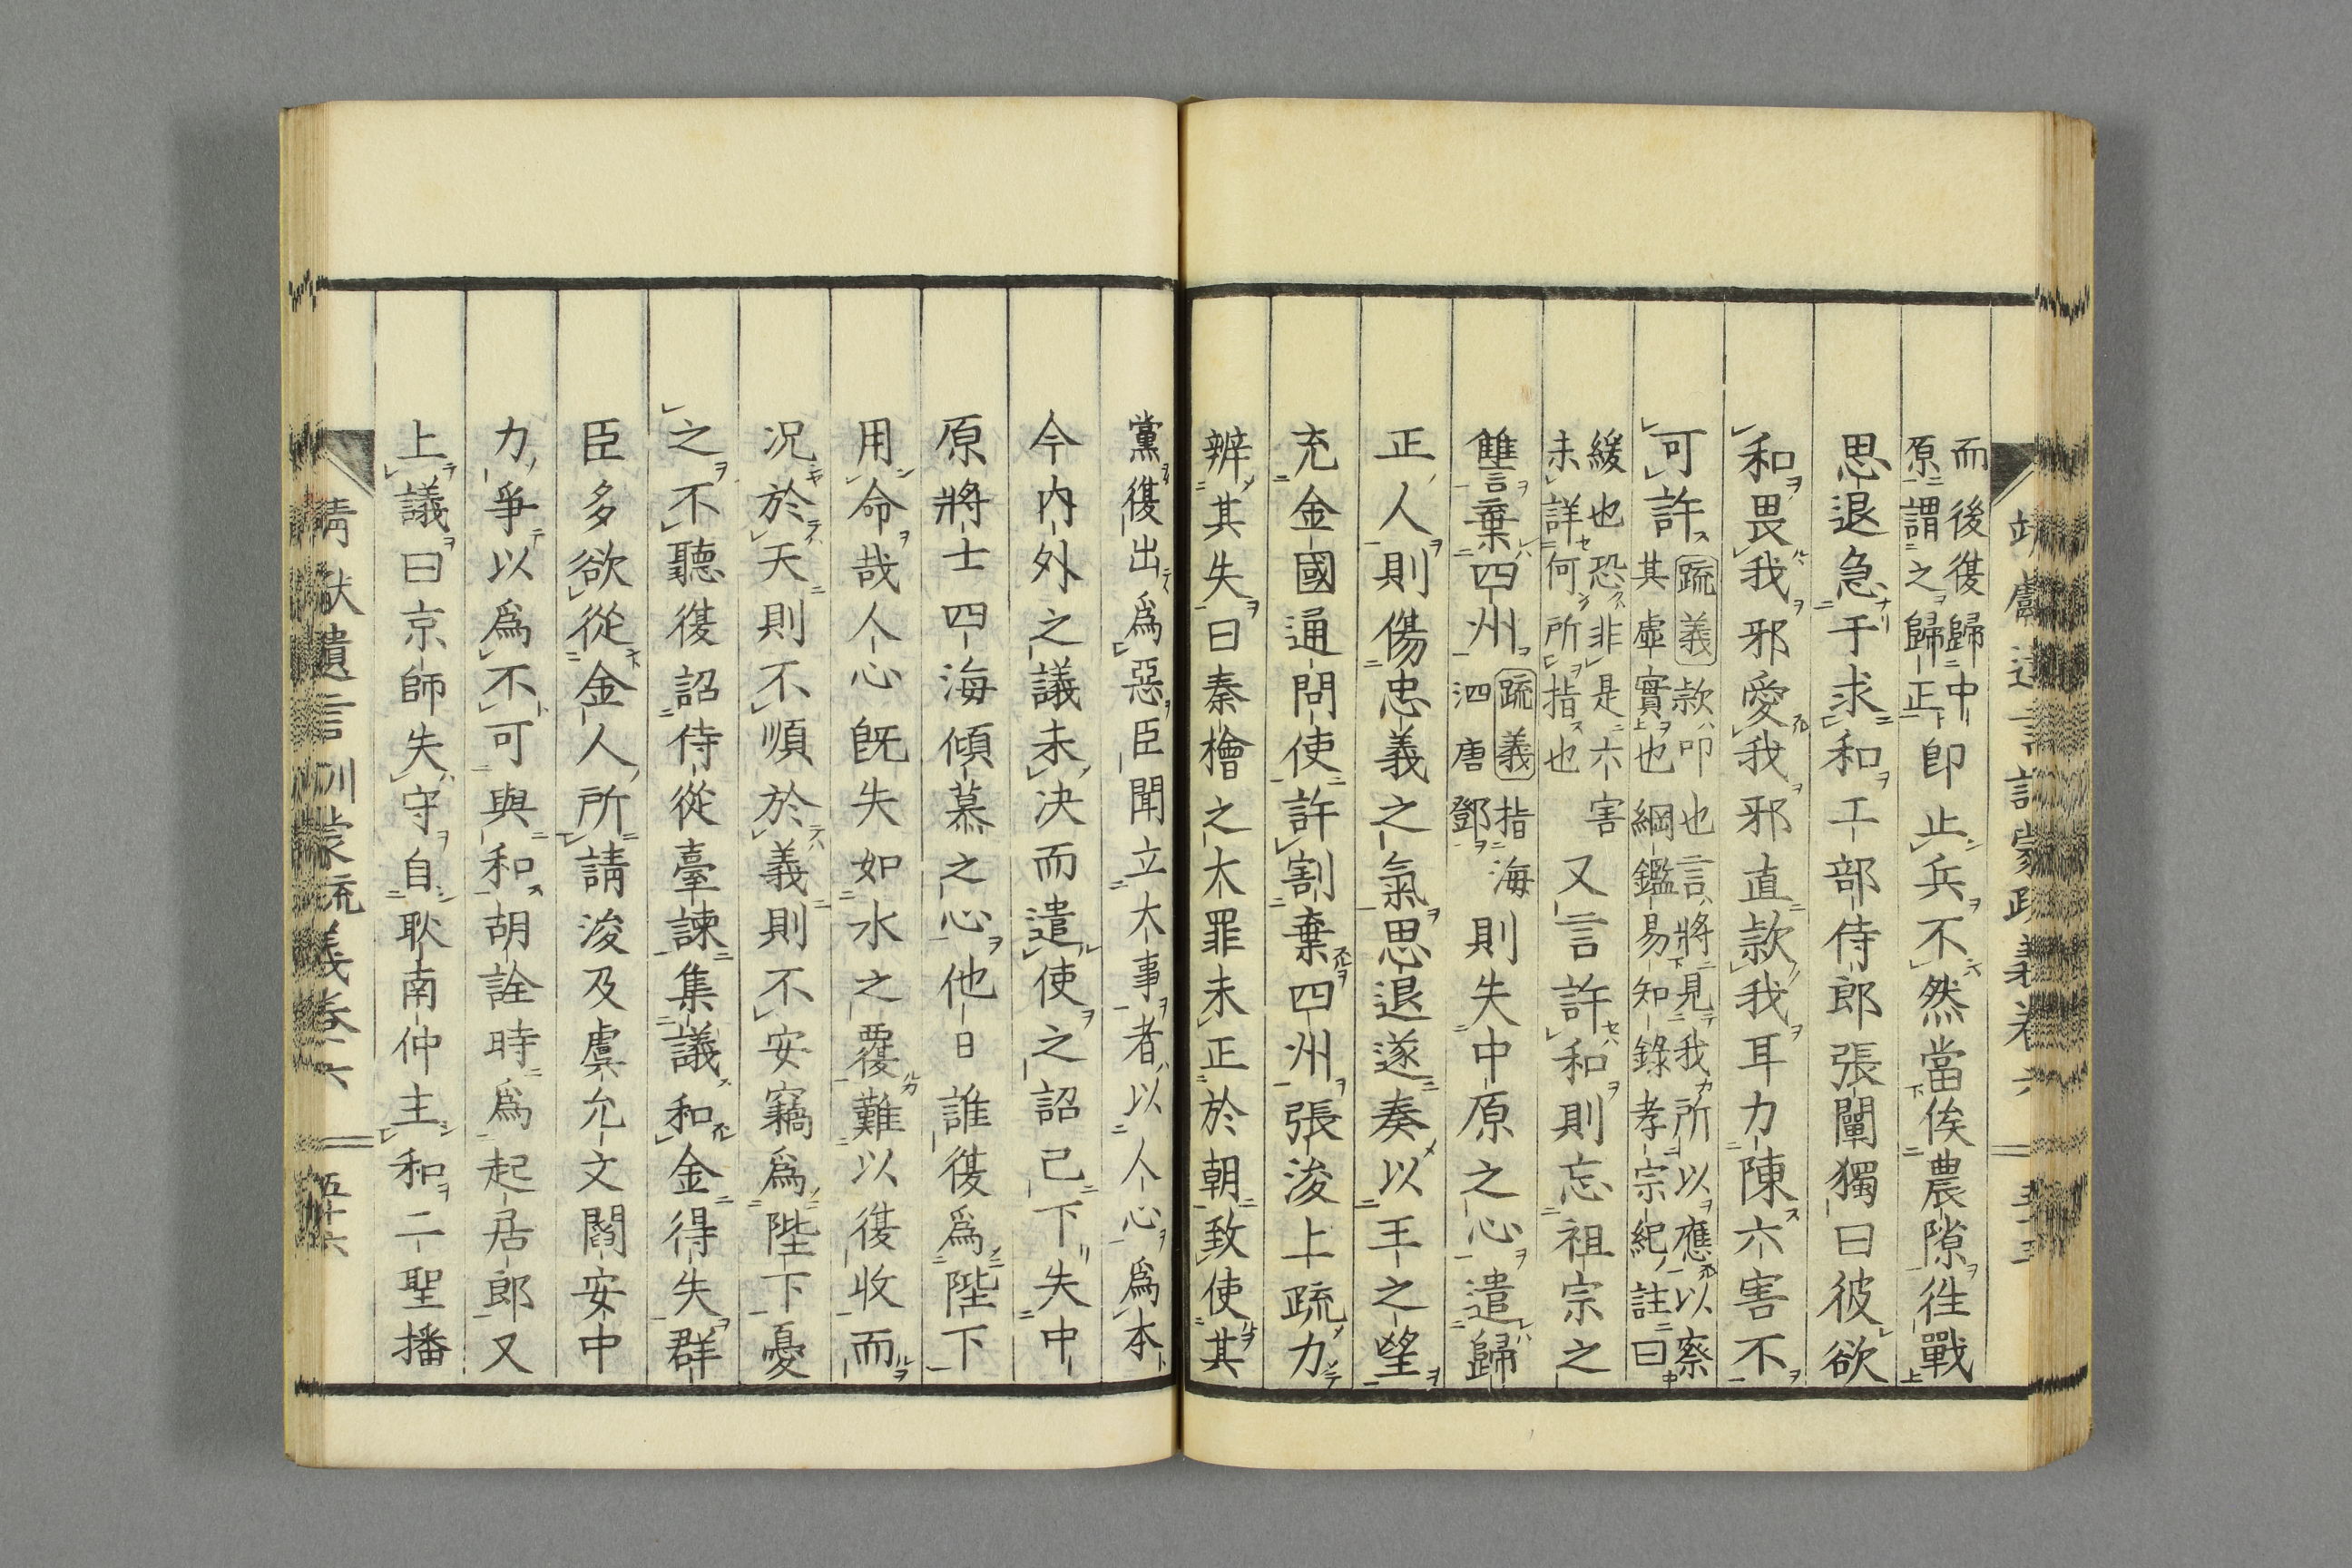 靖獻遺言訓蒙疏義卷六 五十五
而後復歸中
原謂之歸正
即止兵不然當俟農隙徃戰
思退急于求和工部侍郎張闡獨曰彼欲
和畏我邪愛我邪直款我耳力陳六害不
可許
疏義款叩也言將見我所以應以察
其虛實也綱鑑易知錄孝宗紀註曰
緩也恐非是六害
未詳何所指也
又言許和則忘祖宗之
讎棄四州
疏義指海
泗唐鄧
則失中原之心遣歸
正人則傷忠義之氣思退遂奏以王之望
充金國通問使許割棄四州張浚上疏力
辨其失曰秦檜之大罪未正於朝致使其
黨復出爲惡臣聞立大事者以人心爲本
今内外之議未决而遣使之詔已下失中
原將士四海傾慕之心他日誰復爲陛下
用命哉人心既失如水之覆難以復收而
况於天則不順於義則不安竊爲陛下憂
之不聽復詔侍從臺諫集議和金得失群
臣多欲從金人所請浚及虞允文閻安中
力爭以爲不可與和胡詮時爲起居郎又
上議曰京師失守自耿南仲主和二聖播
靖献遺言訓蒙疏義卷六 五十六